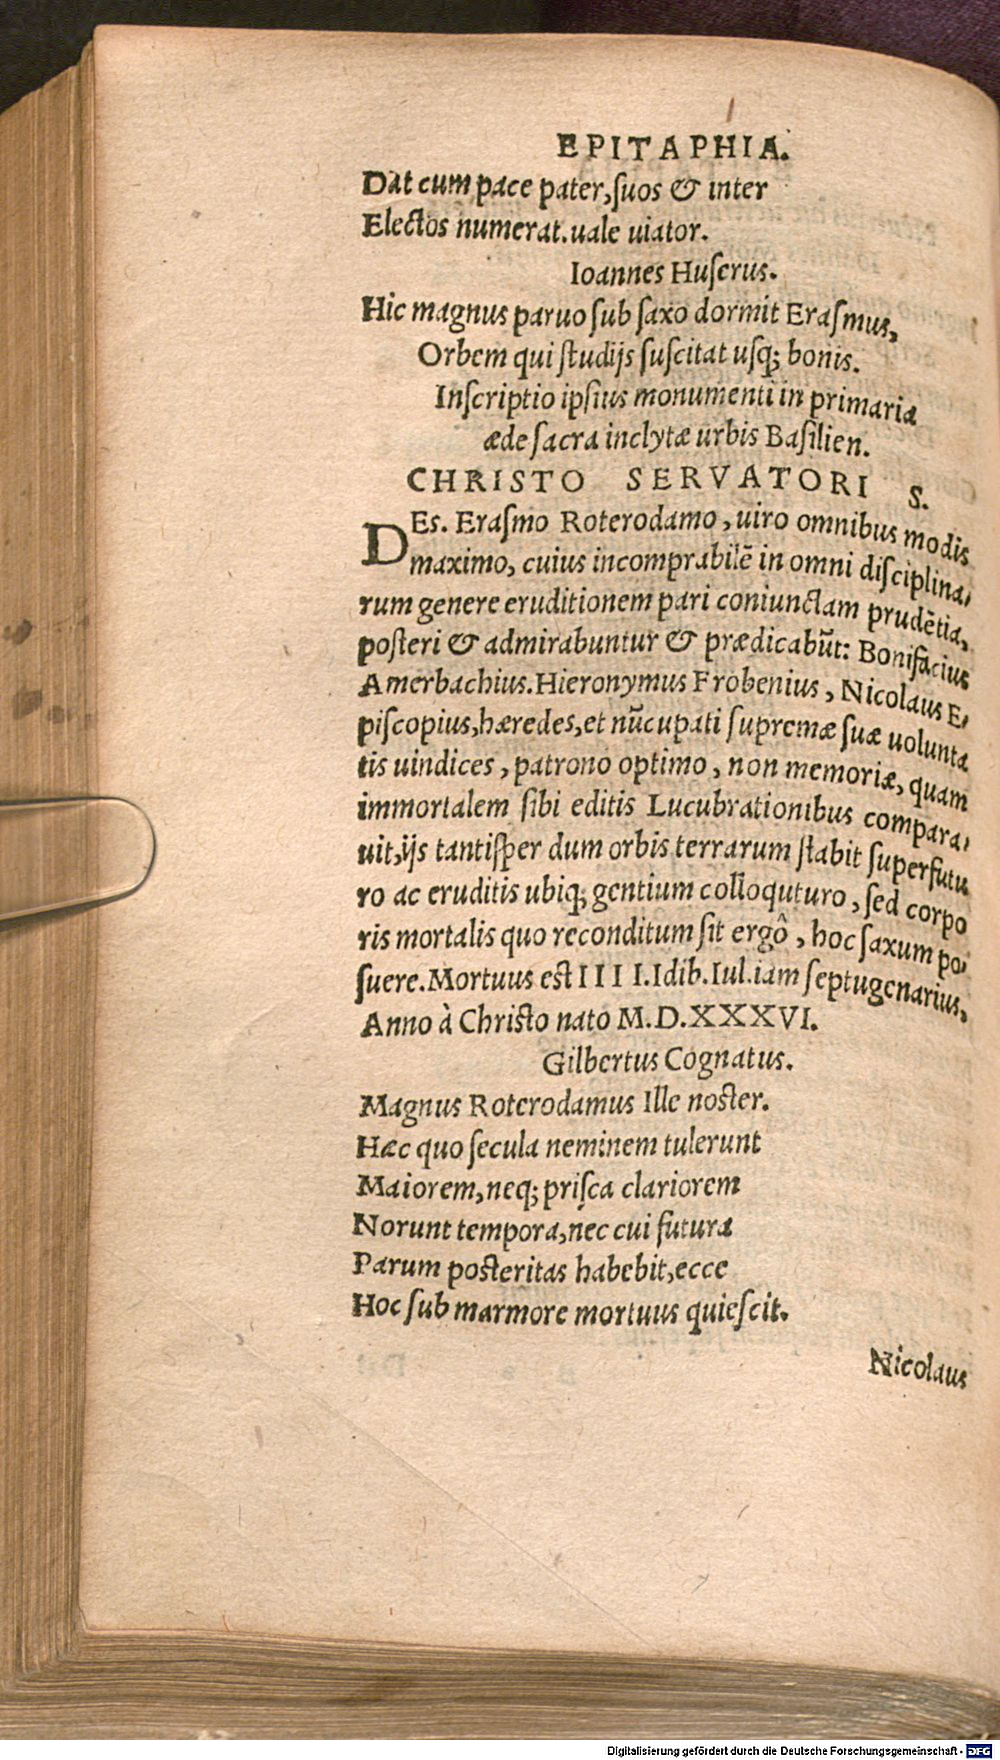 EPITAPHIA.
Dat cum pace pater,ſuos & inter
Electos numerat.uale uiator.
Ioannes Huſerus.
Hic magnus paruo ſub ſaxo dormit Eraſmus,
Orbem qui ſtudijs ſuſcitat uſq; bonis.
Inſcriptio ipſius monumenti in primaria
æde ſacra inclytæ urbis Baſilien.
CHRISTO SERVATORI S.
DEs. Eraſmo Roterodamo, uiro omnibus modis
maximo, cuius incomprabilē in omni diſciplina⸗
rum genere eruditionem pari coniunctam prudētia,
poſteri & admirabuntur & prædicabūt: Bonifacius
Amerbachius.Hieronymus Frobenius, Nicolaus E⸗
piſcopius,hæredes,et nūcupati ſupremæ ſuæ uolunta
tis uindices, patrono optimo, non memoriæ, quam
immortalem ſibi editis Lucubrationibus compara⸗
uit,ijs tantiſper dum orbis terrarum ſtabit ſuperfutu
ro ac eruditis ubiq; gentium colloquturo, ſed corpo
ris mortalis quo reconditum ſit ergô, hoc ſaxum po⸗
ſuere.Mortuus eſt IIII.Idib.Iul.iam ſeptugenarius,
Anno à Chriſto nato M.D.XXXVI.
Gilbertus Cognatus.
Magnus Roterodamus Ille noſter.
Hæc quo ſecula neminem tulerunt
Maiorem,neq; priſca clariorem
Norunt tempora,nec cui futura
Parum poſteritas habebit,ecce
Hoc ſub marmore mortuus quieſcit.
Nicolaus
Digitalisierung gefördert durch die Deutsche Forschungsgemeinschaft - DFG